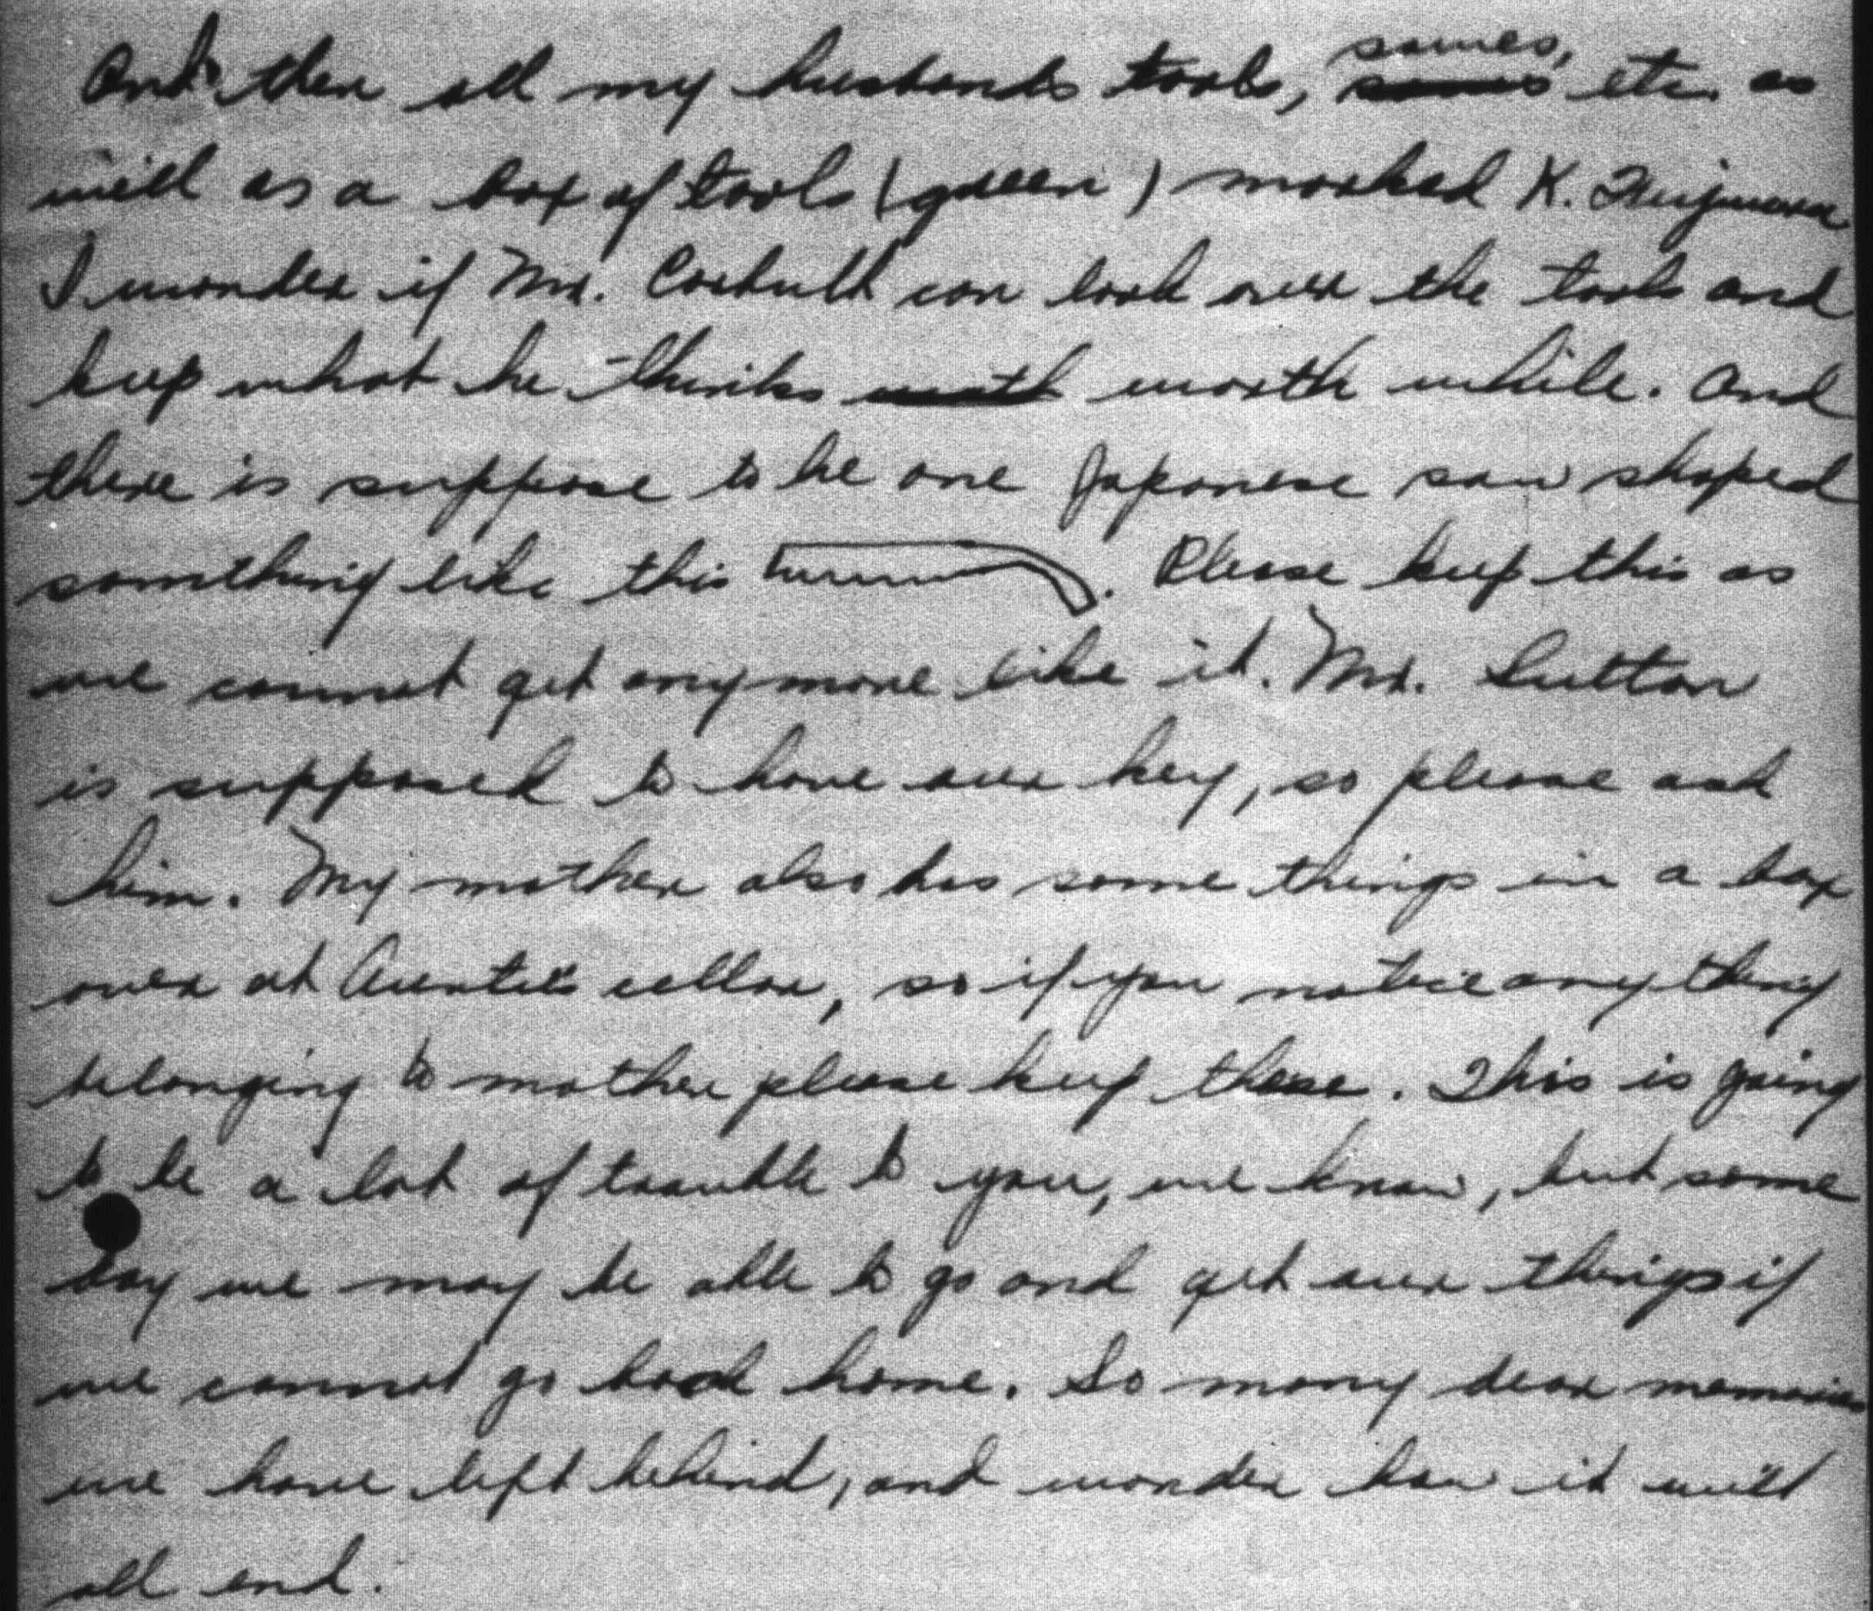 And then all my husbands tools, sawes, etc. as
well as a box of tools (green) marked K.
I wonder if Mr. can look over the tools and
keep what he thinks worth while. And
there is suppose to be one Japanese saw shaped
something like this . Please keep this as
we cannot get anymore like it. Mr. Sutton
is supposed to have our key, so please ask
him. My mother also has some things in a box
over at Auntie's cellar, so if you notice anything
belonging to mother please keep these. This is going
to be a lot of trouble to you, we know, but some
day we may be able to go and get our things if
we cannot go back home. So many dear memories
we have left behind, and wonder how it will
all end.